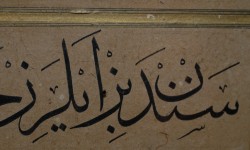 سندن بز ایلرز